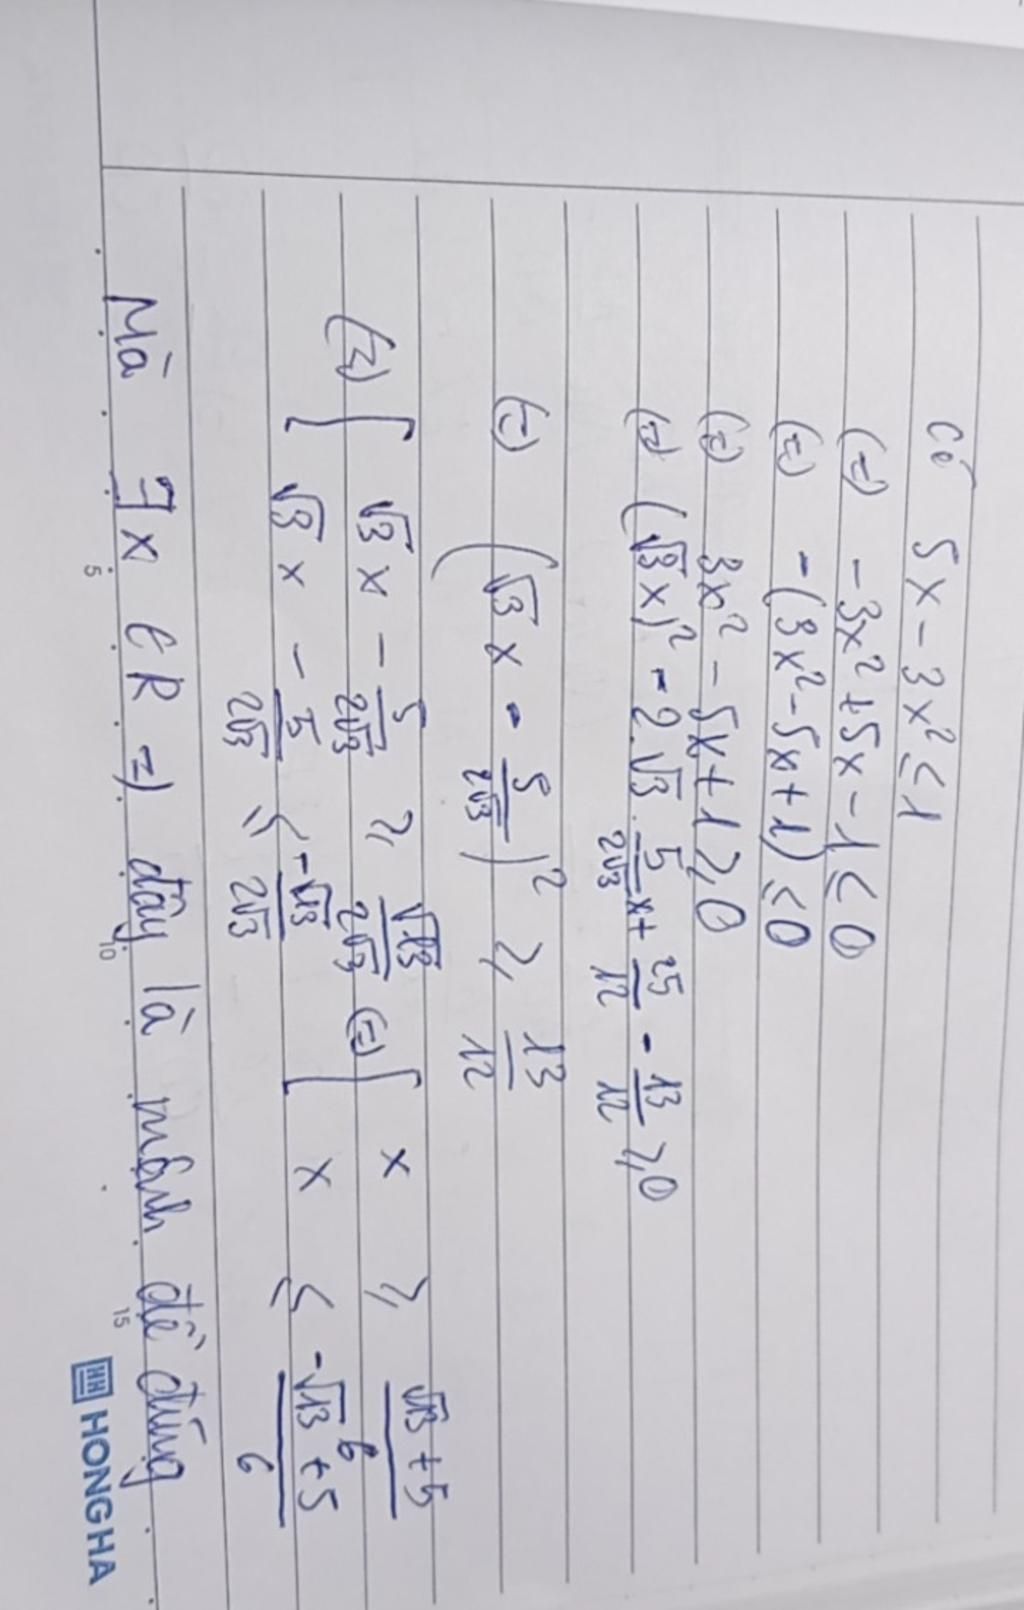 Có 5x - 3x² ≤ 1
(=) -3x² + 5x - 1 ≤ 0
(=) -(3x² - 5x + 1) ≤ 0
(=) 3x² - 5x + 1 ≥ 0
(=) (√3x)² - 2.√3.5/2√3 x + 25/12 - 13/12 ≥ 0
(=) (√3 x - 5/2√3)² ≥ 13/12
(=) [ √3 x - 5/2√3 ≥ √13/2√3 (=) [ x ≥ √13 + 5/6
√3 x - 5/2√3 ≤ -√13/2√3 x ≤ -√13 + 5/6
Mà ∃x ∈ R =) đây là mệnh đề đúng
5 10 15
HH HONG HA